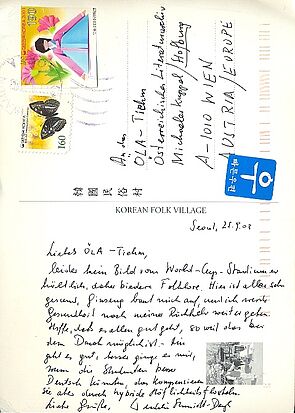 190
160
An das
ÖLA-Team
Österreichisches Literaturarchiv
Michaelerkuppel Hofburg
A-1010 WIEN
AUSTRIA/EUROPE
빠른우편
韓國民俗村
KOREAN FOLK VILLAGE
Seoul, 03
Liebes ÖLA-Team,
leider kein Bild vom World-Cup-Stadium er-
hältlich, daher biedere Folklore. Hier ist alles sehr
gesund, Ginseng baut mich auf, werde
Gesundheit nach meiner Rückkehr weitergeben.
Hoffe, dass es allen gut geht, so weil das bei
dem möglich ist - hier
geht es gut, besser ginge es mir,
wenn die Studenten besser
Deutsch könnten, das kompensieren
sie aber durch hybride Höflichkeitsfloskeln.
Liebe Grüße,